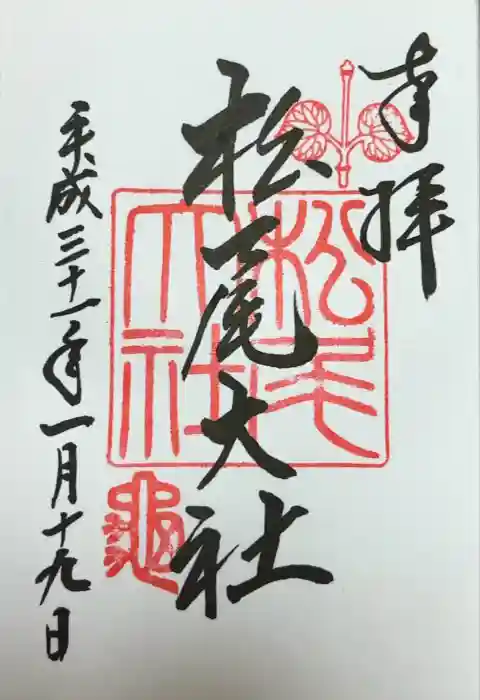 奉拝
松尾大社
松尾大社
亀
平成三十一年一月十九日